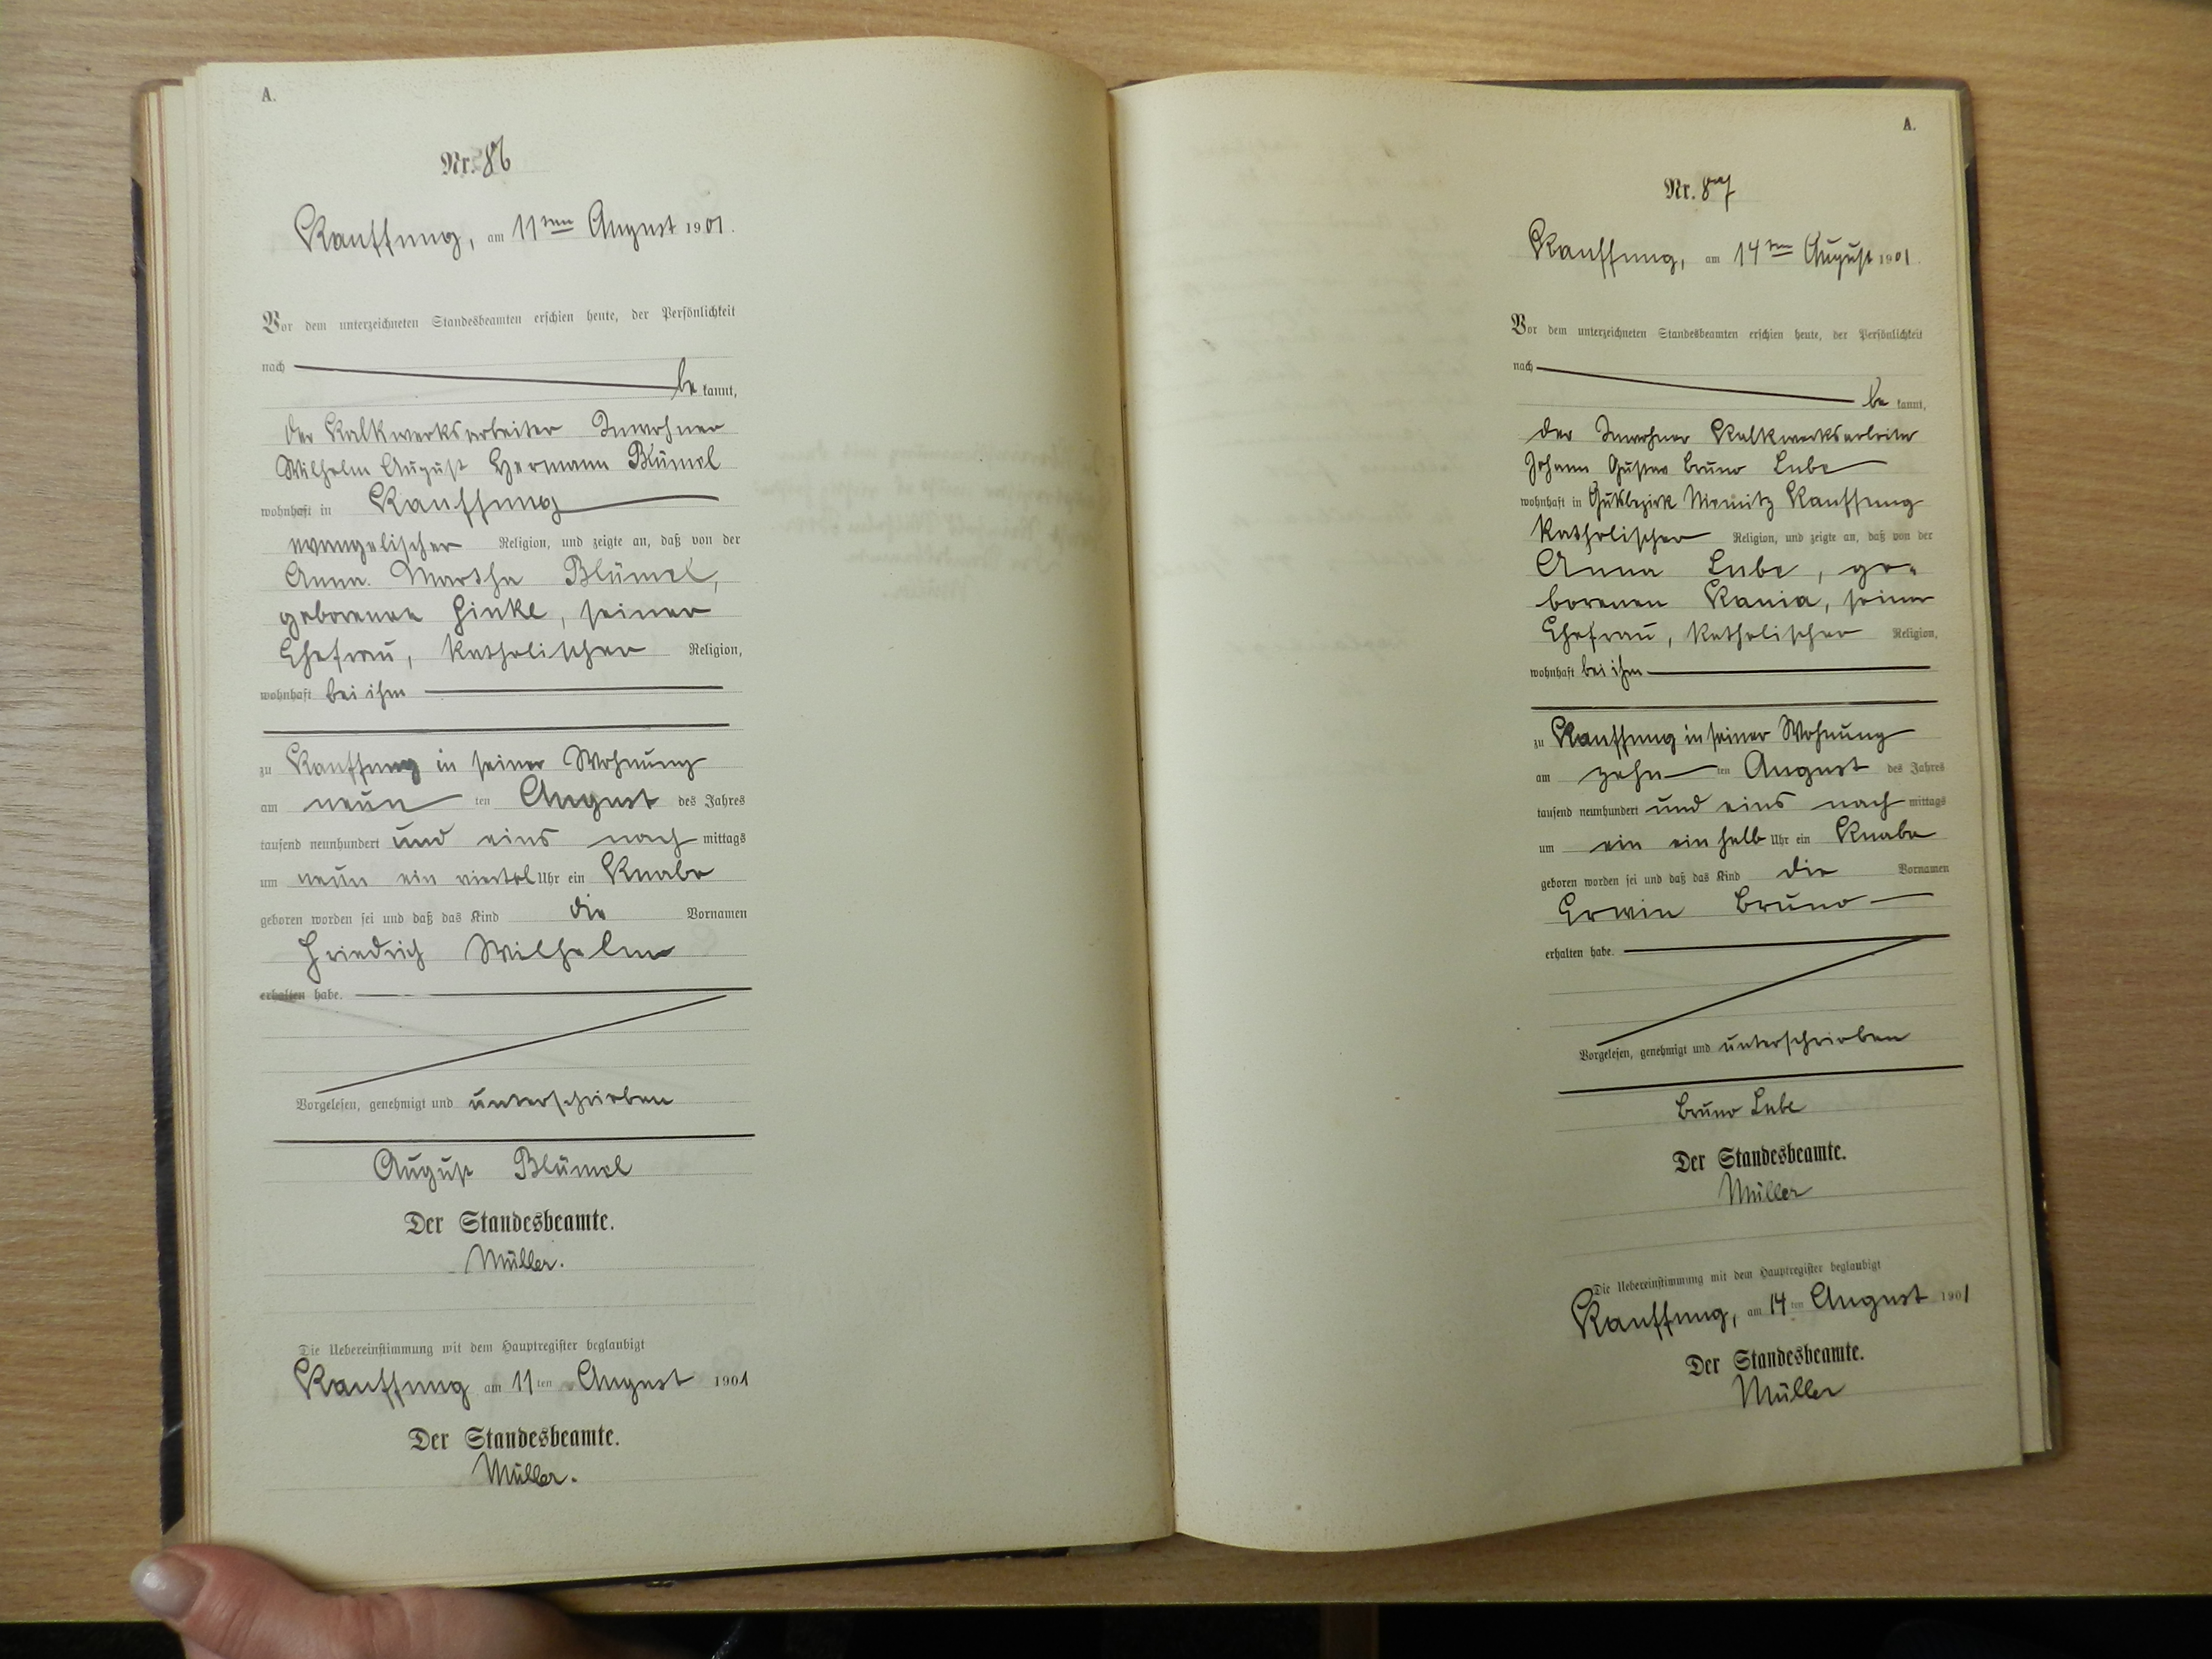 A.
Nr. 86
Kauffung, am 11ten August 1901.
Vor dem unterzeichneten Standesbeamten erschien heute, der Persönlichkeit
nach
be kannt,
der Kalkwerksarbeiter Inwohner
Wilhelm August Hermann Blümel
wohnhaft in Kauffung
evangelischer Religion, und zeigte an, daß von der
Anna Martha Blümel,
geborenen Hinke, seiner
Ehefrau, katholischer Religion,
wohnhaft bei ihm
zu Kauffung in seiner Wohnung
am neun ten August des Jahres
tausend neunhundert und eins nach mittags
um neun ein viertel Uhr ein Knabe
geboren worden sei und daß das Kind die Vornamen
Friedrich Wilhelm
erhalten habe.
Vorgelesen, genehmigt und unterschrieben
August Blümel
Der Standesbeamte.
Müller.
Die Uebereinstimmung mit dem Hauptregister beglaubigt
Kauffung am 11 ten August 1901
Der Standesbeamte.
Müller.
A.
Nr. 87
Kauffung, am 14ten August 1901.
Vor dem unterzeichneten Standesbeamten erschien heute, der Persönlichkeit
nach
be kannt,
der Inwohner Kalkwerksarbeiter
Johann Gustav Bruno Lube
wohnhaft in Gutsbezirk Niemitz Kauffung
katholischer Religion, und zeigte an, daß von der
Anna Lube, ge-
borenen Kania, seiner
Ehefrau, katholischer Religion,
wohnhaft bei ihm
zu Kauffung in seiner Wohnung
am zehn ten August des Jahres
tausend neunhundert und eins nach mittags
um ein ein halb Uhr ein Knabe
geboren worden sei und daß das Kind die Vornamen
Erwin Bruno
erhalten habe.
Vorgelesen, genehmigt und unterschrieben
Bruno Lube
Der Standesbeamte.
Müller
Die Uebereinstimmung mit dem Hauptregister beglaubigt
Kauffung, am 14 ten August 1901
Der Standesbeamte.
Müller